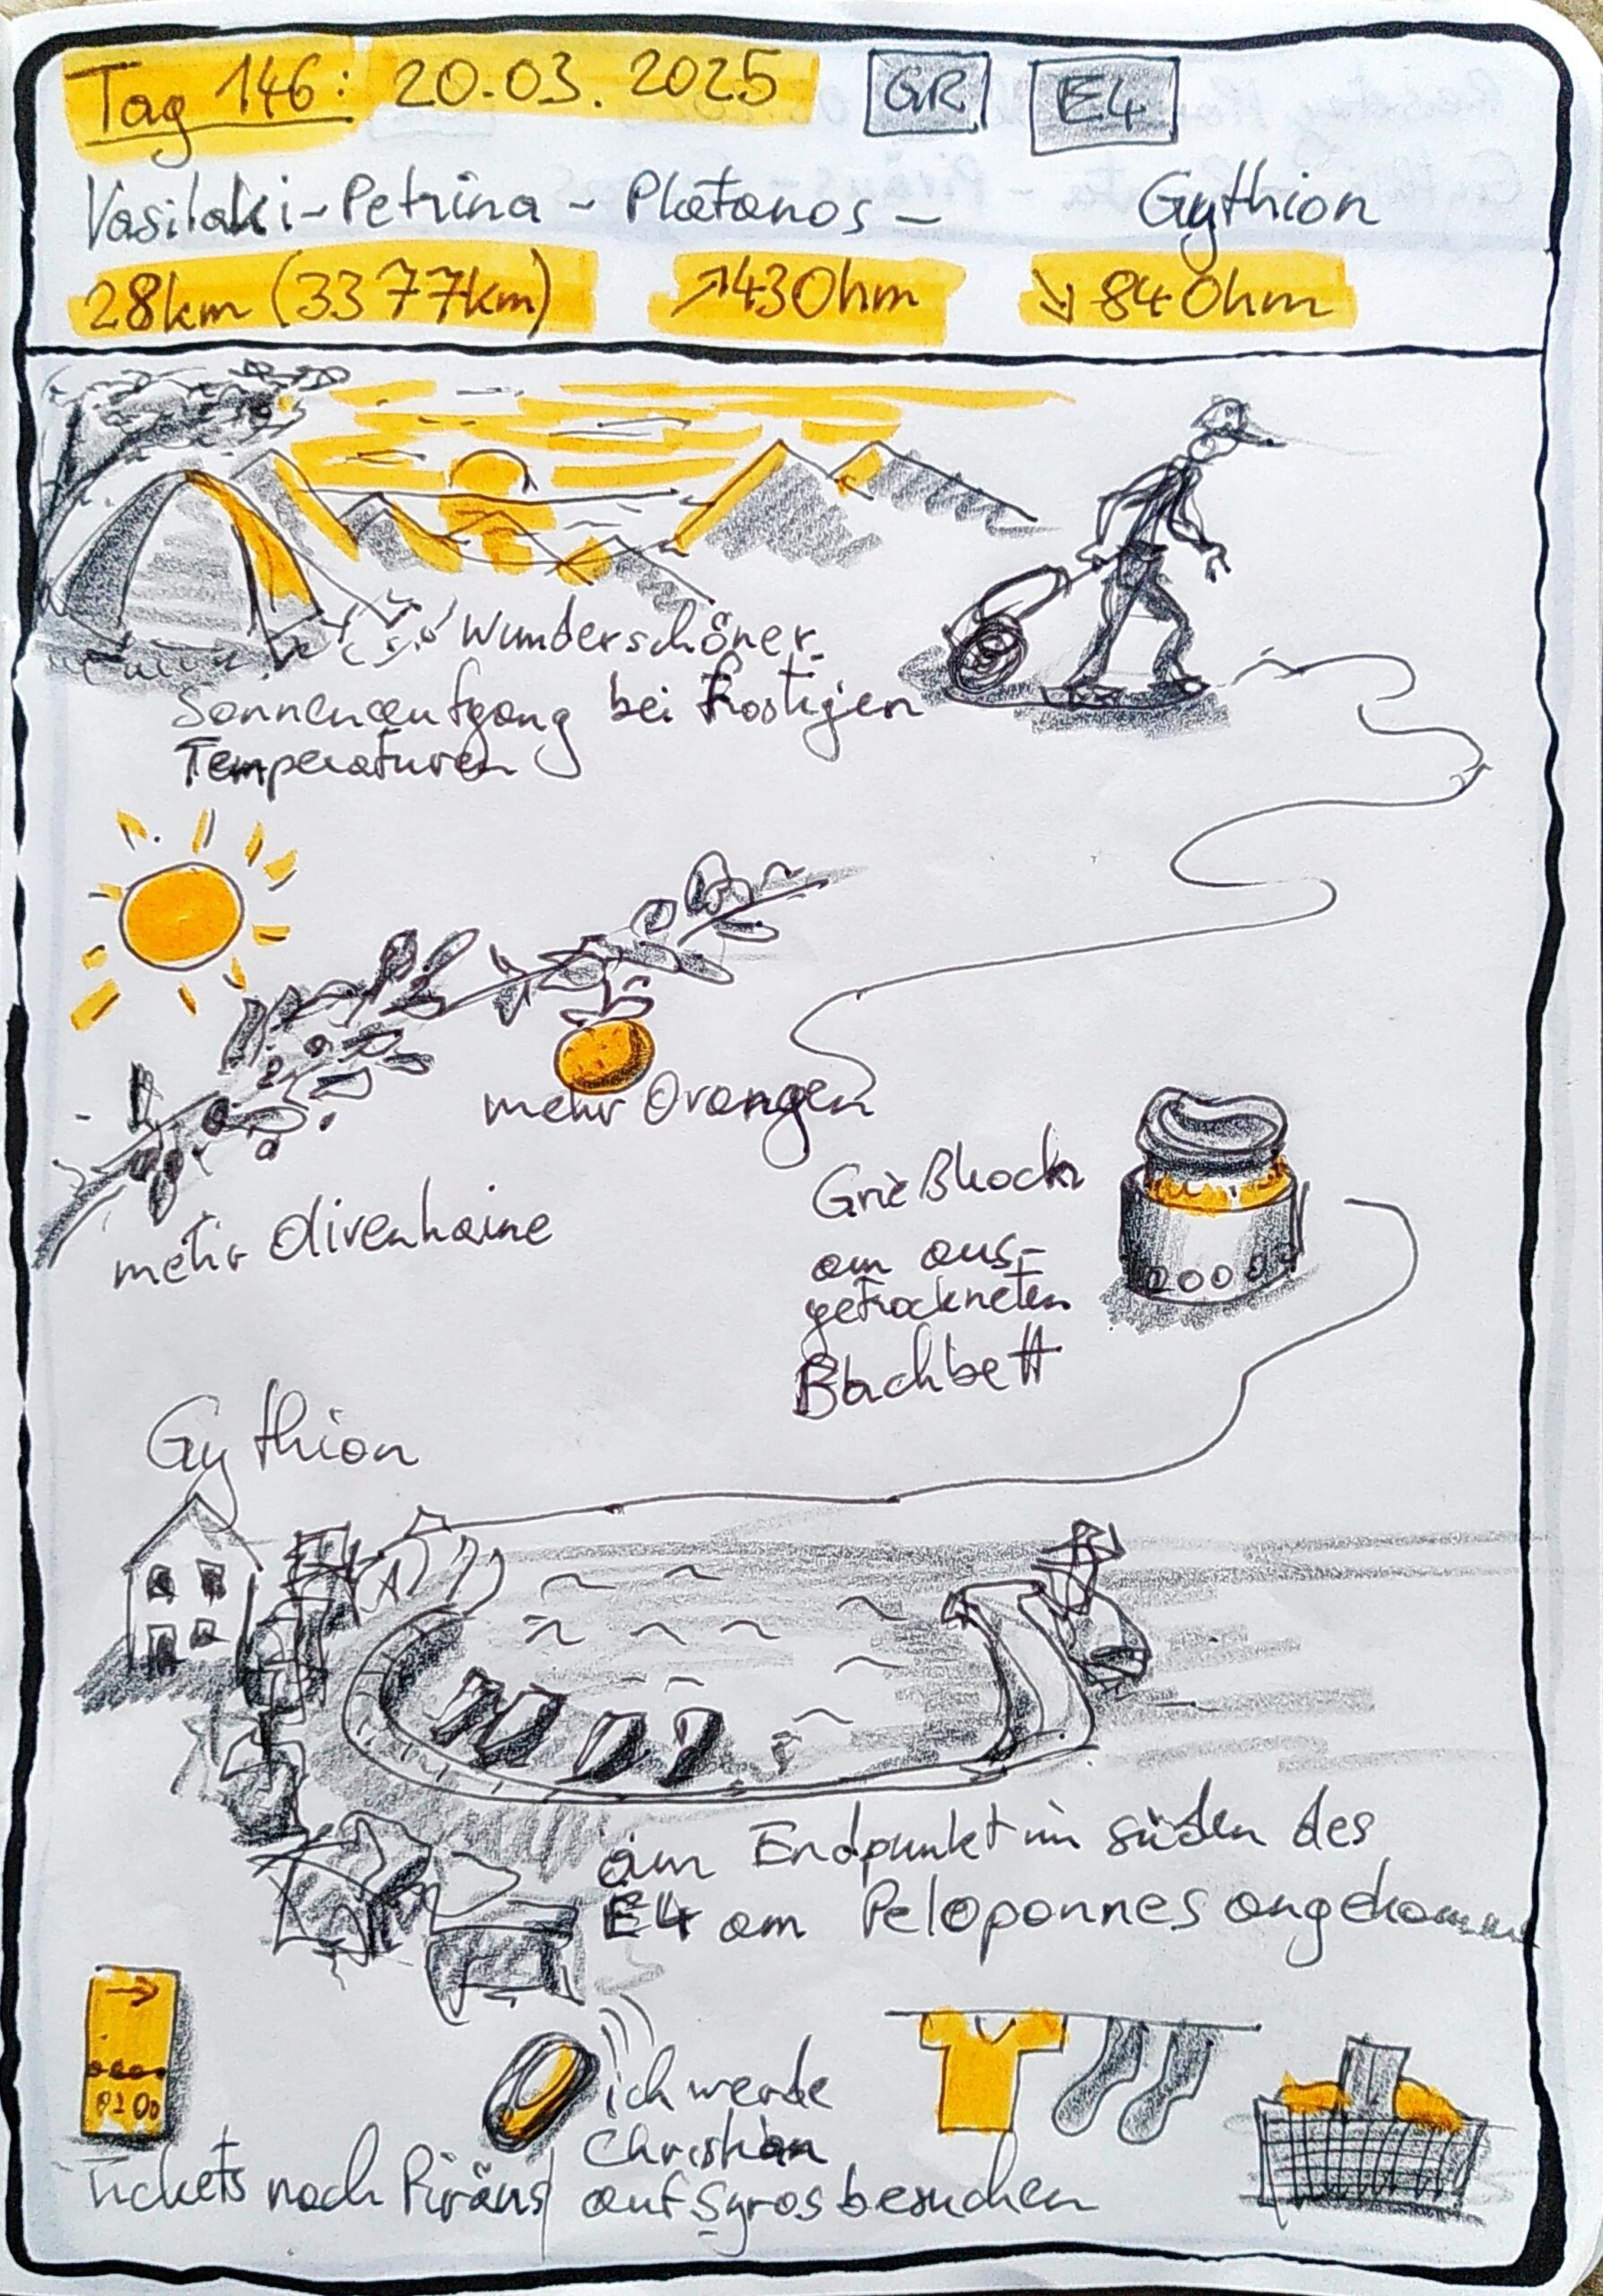 Tag 146: 20.03.2025 GR E4
Vasilaki-Petrina - Platanos - Gythion
28km (3377km) ↗430hm ↘840hm
Wunderschöner
Sonnenaufgang bei frostigen
Temperaturen
mehr Orangen
mehr Olivenhaine
Grießkoch
am aus-
getrockneten
Bachbett
Gythion
am Endpunkt im Süden des
E4 am Peloponnes angekommen
ich werde
Christian
Tickets nach Piräus auf Syros besuchen